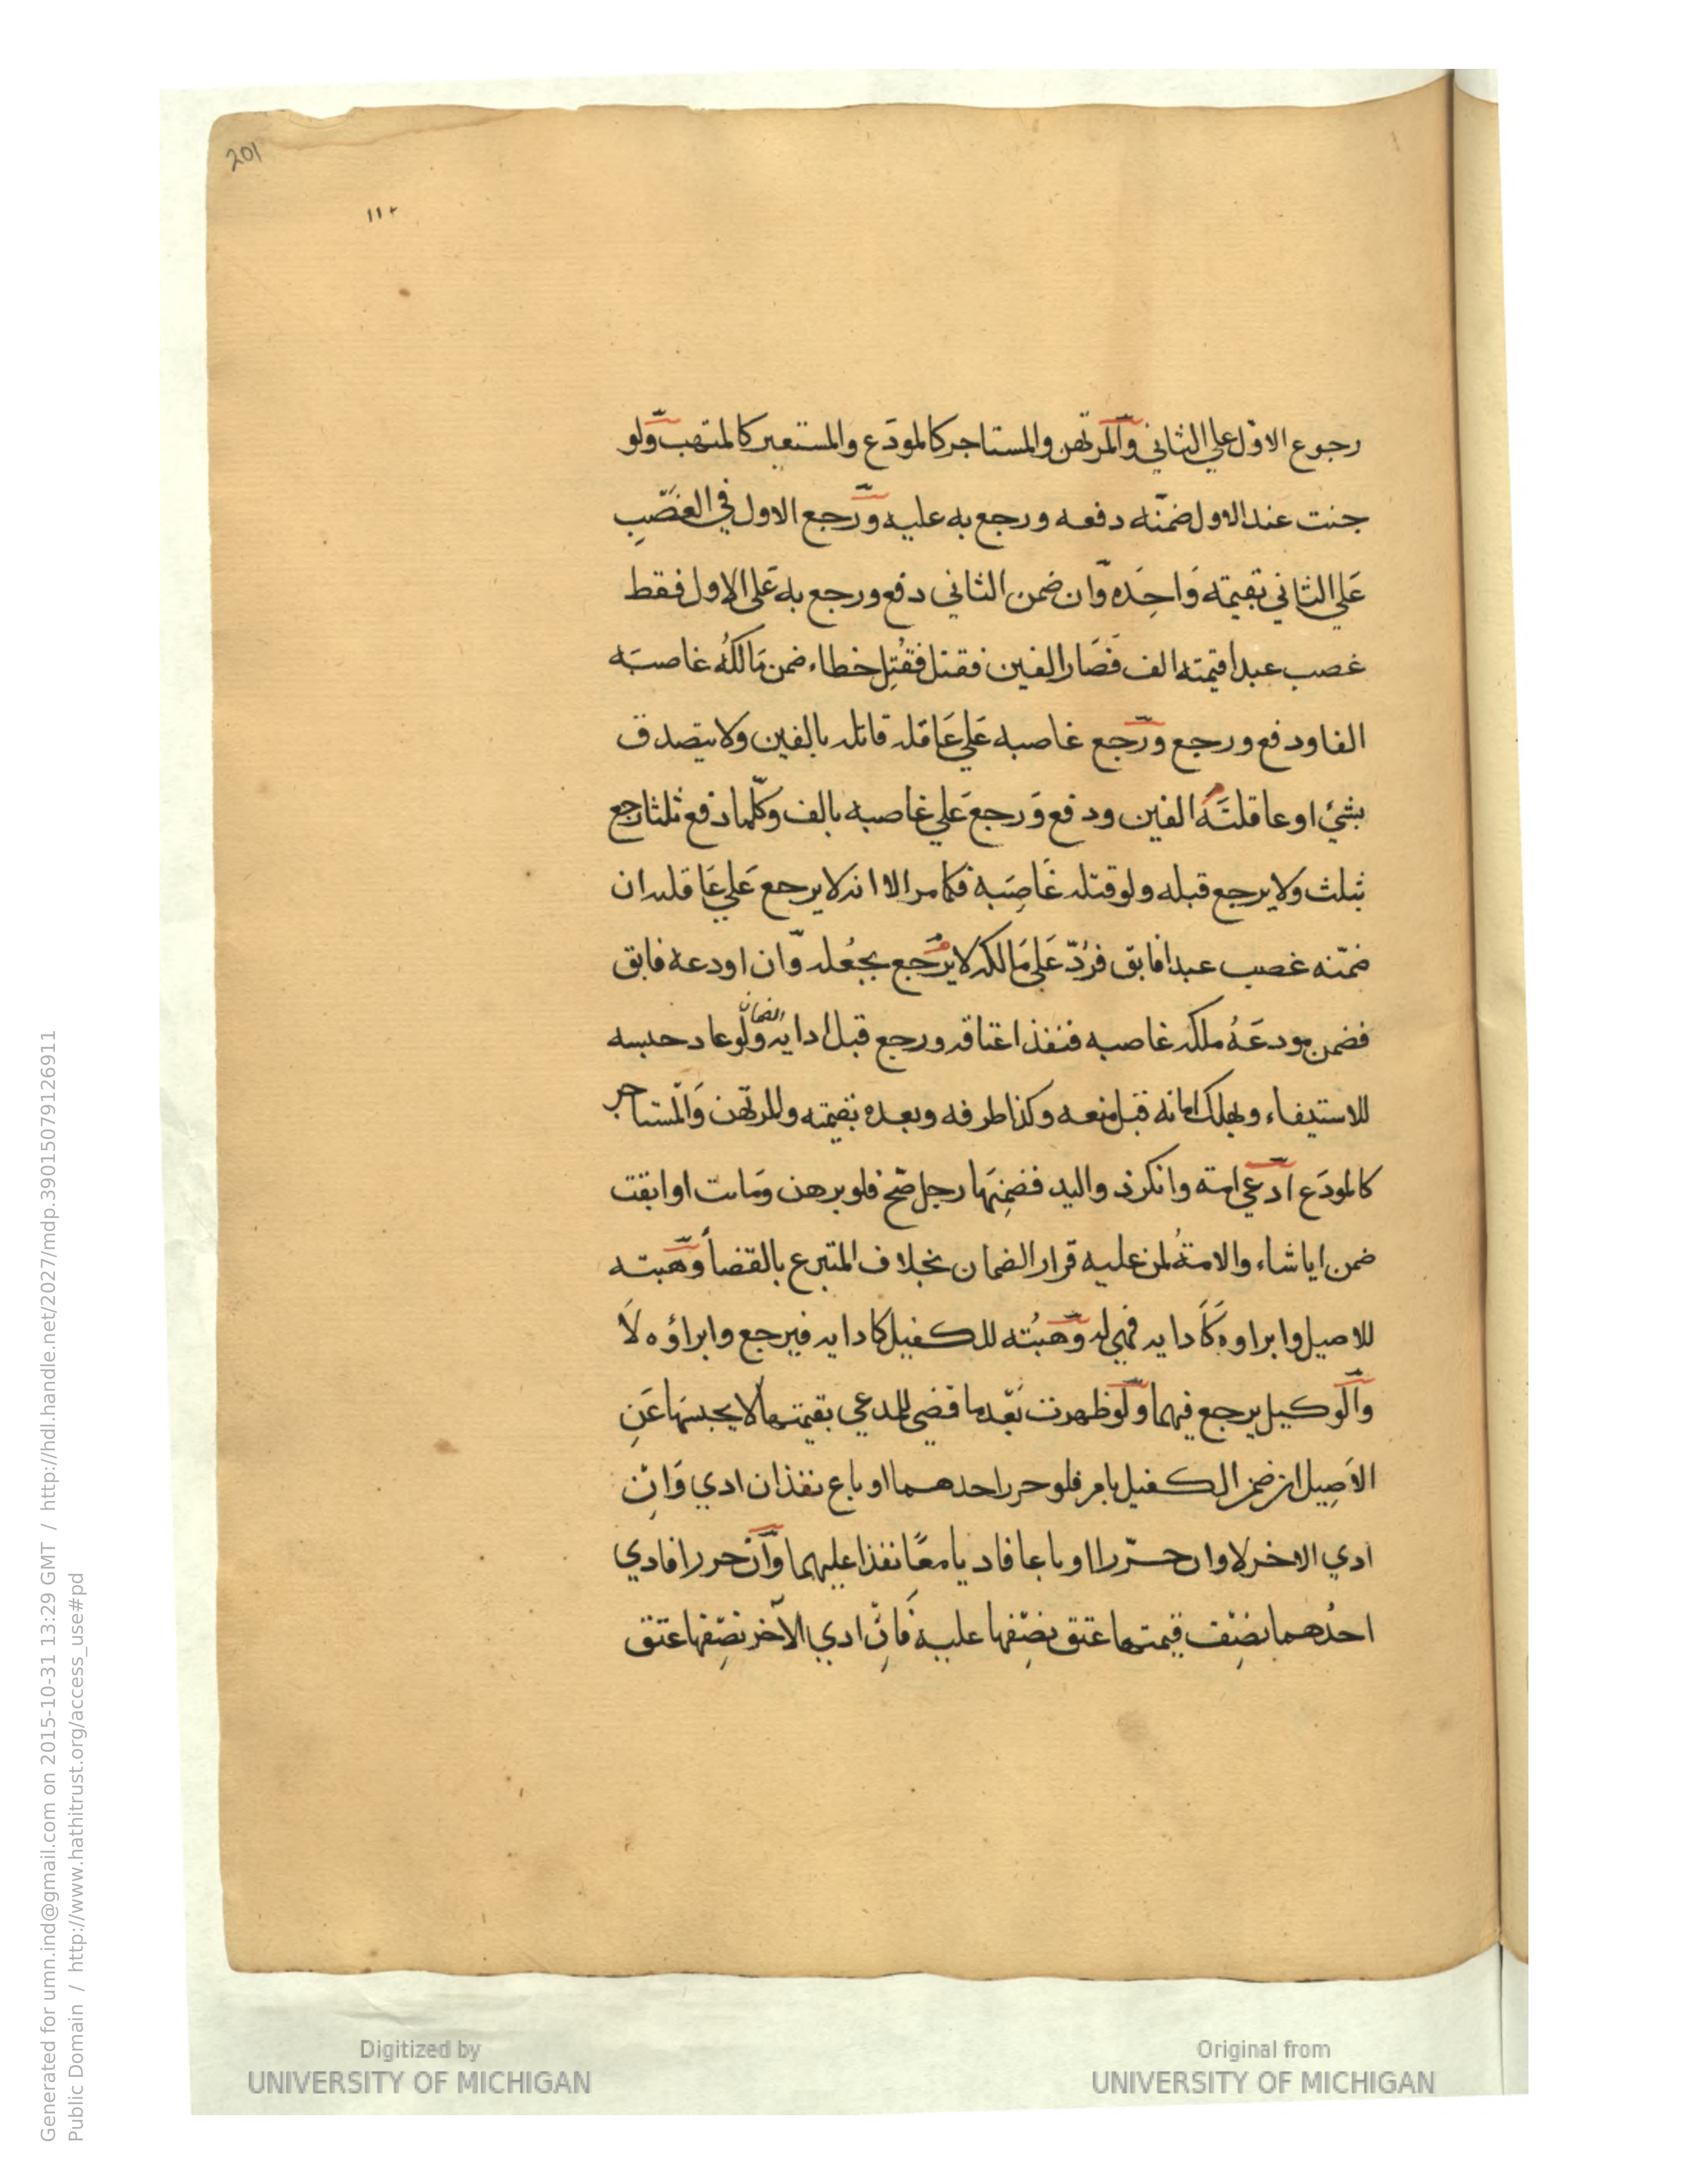 201
١١٢
رجوع الاوّل علي الثاني والمرتهن والمستاجر كالمودَع والمستعير كالمتهب ولو
جنت عند الاول ضمنه دفعه ورجع به عليه ورجع الاول في الغصب
عَلي الثاني بقيمته وَاحِدَه وان ضمن الثاني دفع ورجع به عَلي الاول فقط
غصب عبدا قيمته الف فصَار الفين فقتل فقُتِل خطاء ضمن مَالكُه غاصبَه
الفا ودفع ورجع ورجع غاصبه عَلي عَاقله قاتله بالفين ولا يتصدق
بشئ او عاقلتَهُ الفين ودفع وَرجعَ عَلي غاصبه بالف وكلّما دفع ثلثا رجع
بثلث ولا يرجع قبله ولو قتله غَاصِبَه فكما مر الا انه لا يرجع عَلي عَاقله ان
ضمّنه غصب عبدا فابق فرُدّ عَلي مَالكه لا يرجع بجعُله وان اودعه فابق
فضمن مودعَهُ ملكه غاصبه فنفذ اعتاقه ورجع قبل ادايه الضمان ولو عاد حبسه
للاستيفاء وبهلك امانه قبل منعه وكذا طرفه وبعده بقيمته والمرتهن وَالمستاجر
كالمودَع ادعي امة وانكر ذو اليد فضمِنَها رجل صح فلو برهن ومَاتت او ابقت
ضمن ايا شاء والامةُ لمن عليه قرار الضمان بخلاف المتبرع بالقضأ وهبته
للاصيل وابراوه كَادايه فهي له وهبُته للكفيل كادايه فيرجع وابراؤه لَا
والوكيل يرجع فيهما ولو ظهرت بَعْد ما قضي للمدعي بقيمتها لا يحبسَها عَنِ
الاَصِيل ان ضمن الكفيل بامر فلو حرر احدهما او باع نفذ ان ادي وَانِ
ادي الاخر لا وان حرّرا او باعا فاديا معًا نفذا عليهما وان حررا فادي
احدُهما نصْف قيمتها عتق نصْفها عليه فَاِنْ ادي الآخر نصْفها عتق
Digitized by
UNIVERSITY OF MICHIGAN
Original from
UNIVERSITY OF MICHIGAN
Generated for umn.ind@gmail.com on 2015-10-31 13:29 GMT / http://hdl.handle.net/2027/mdp.39015079126911
Public Domain / http://www.hathitrust.org/access_use#pd